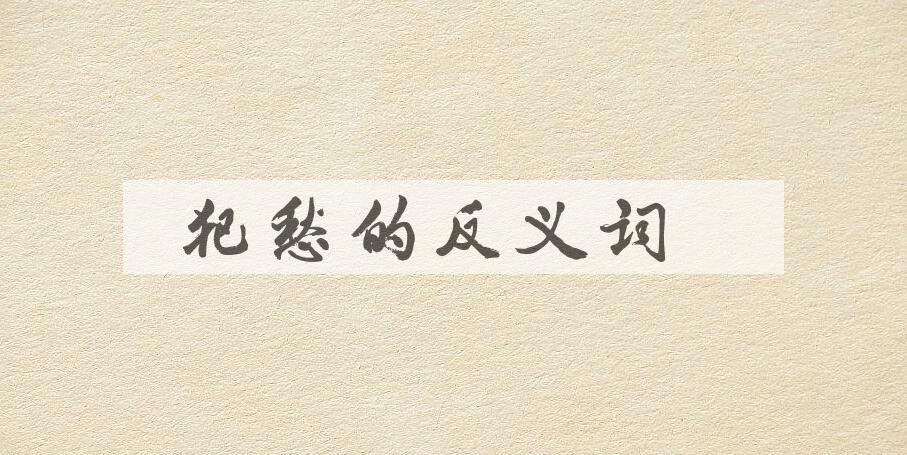 犯愁的反义词